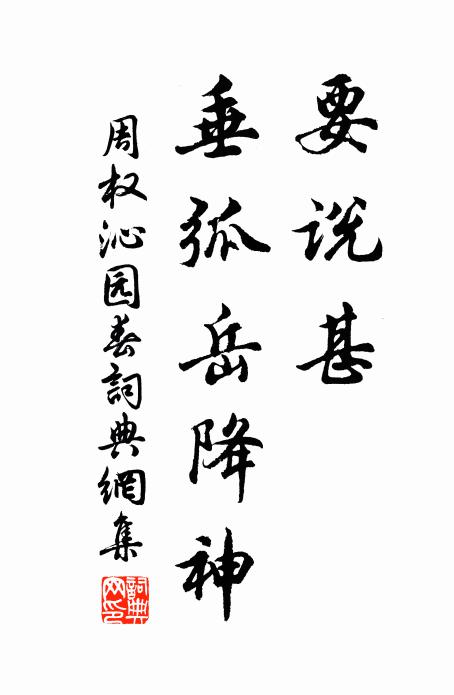 要说甚
垂弧岳降神
周权沁园春詞典網集
詞典网印